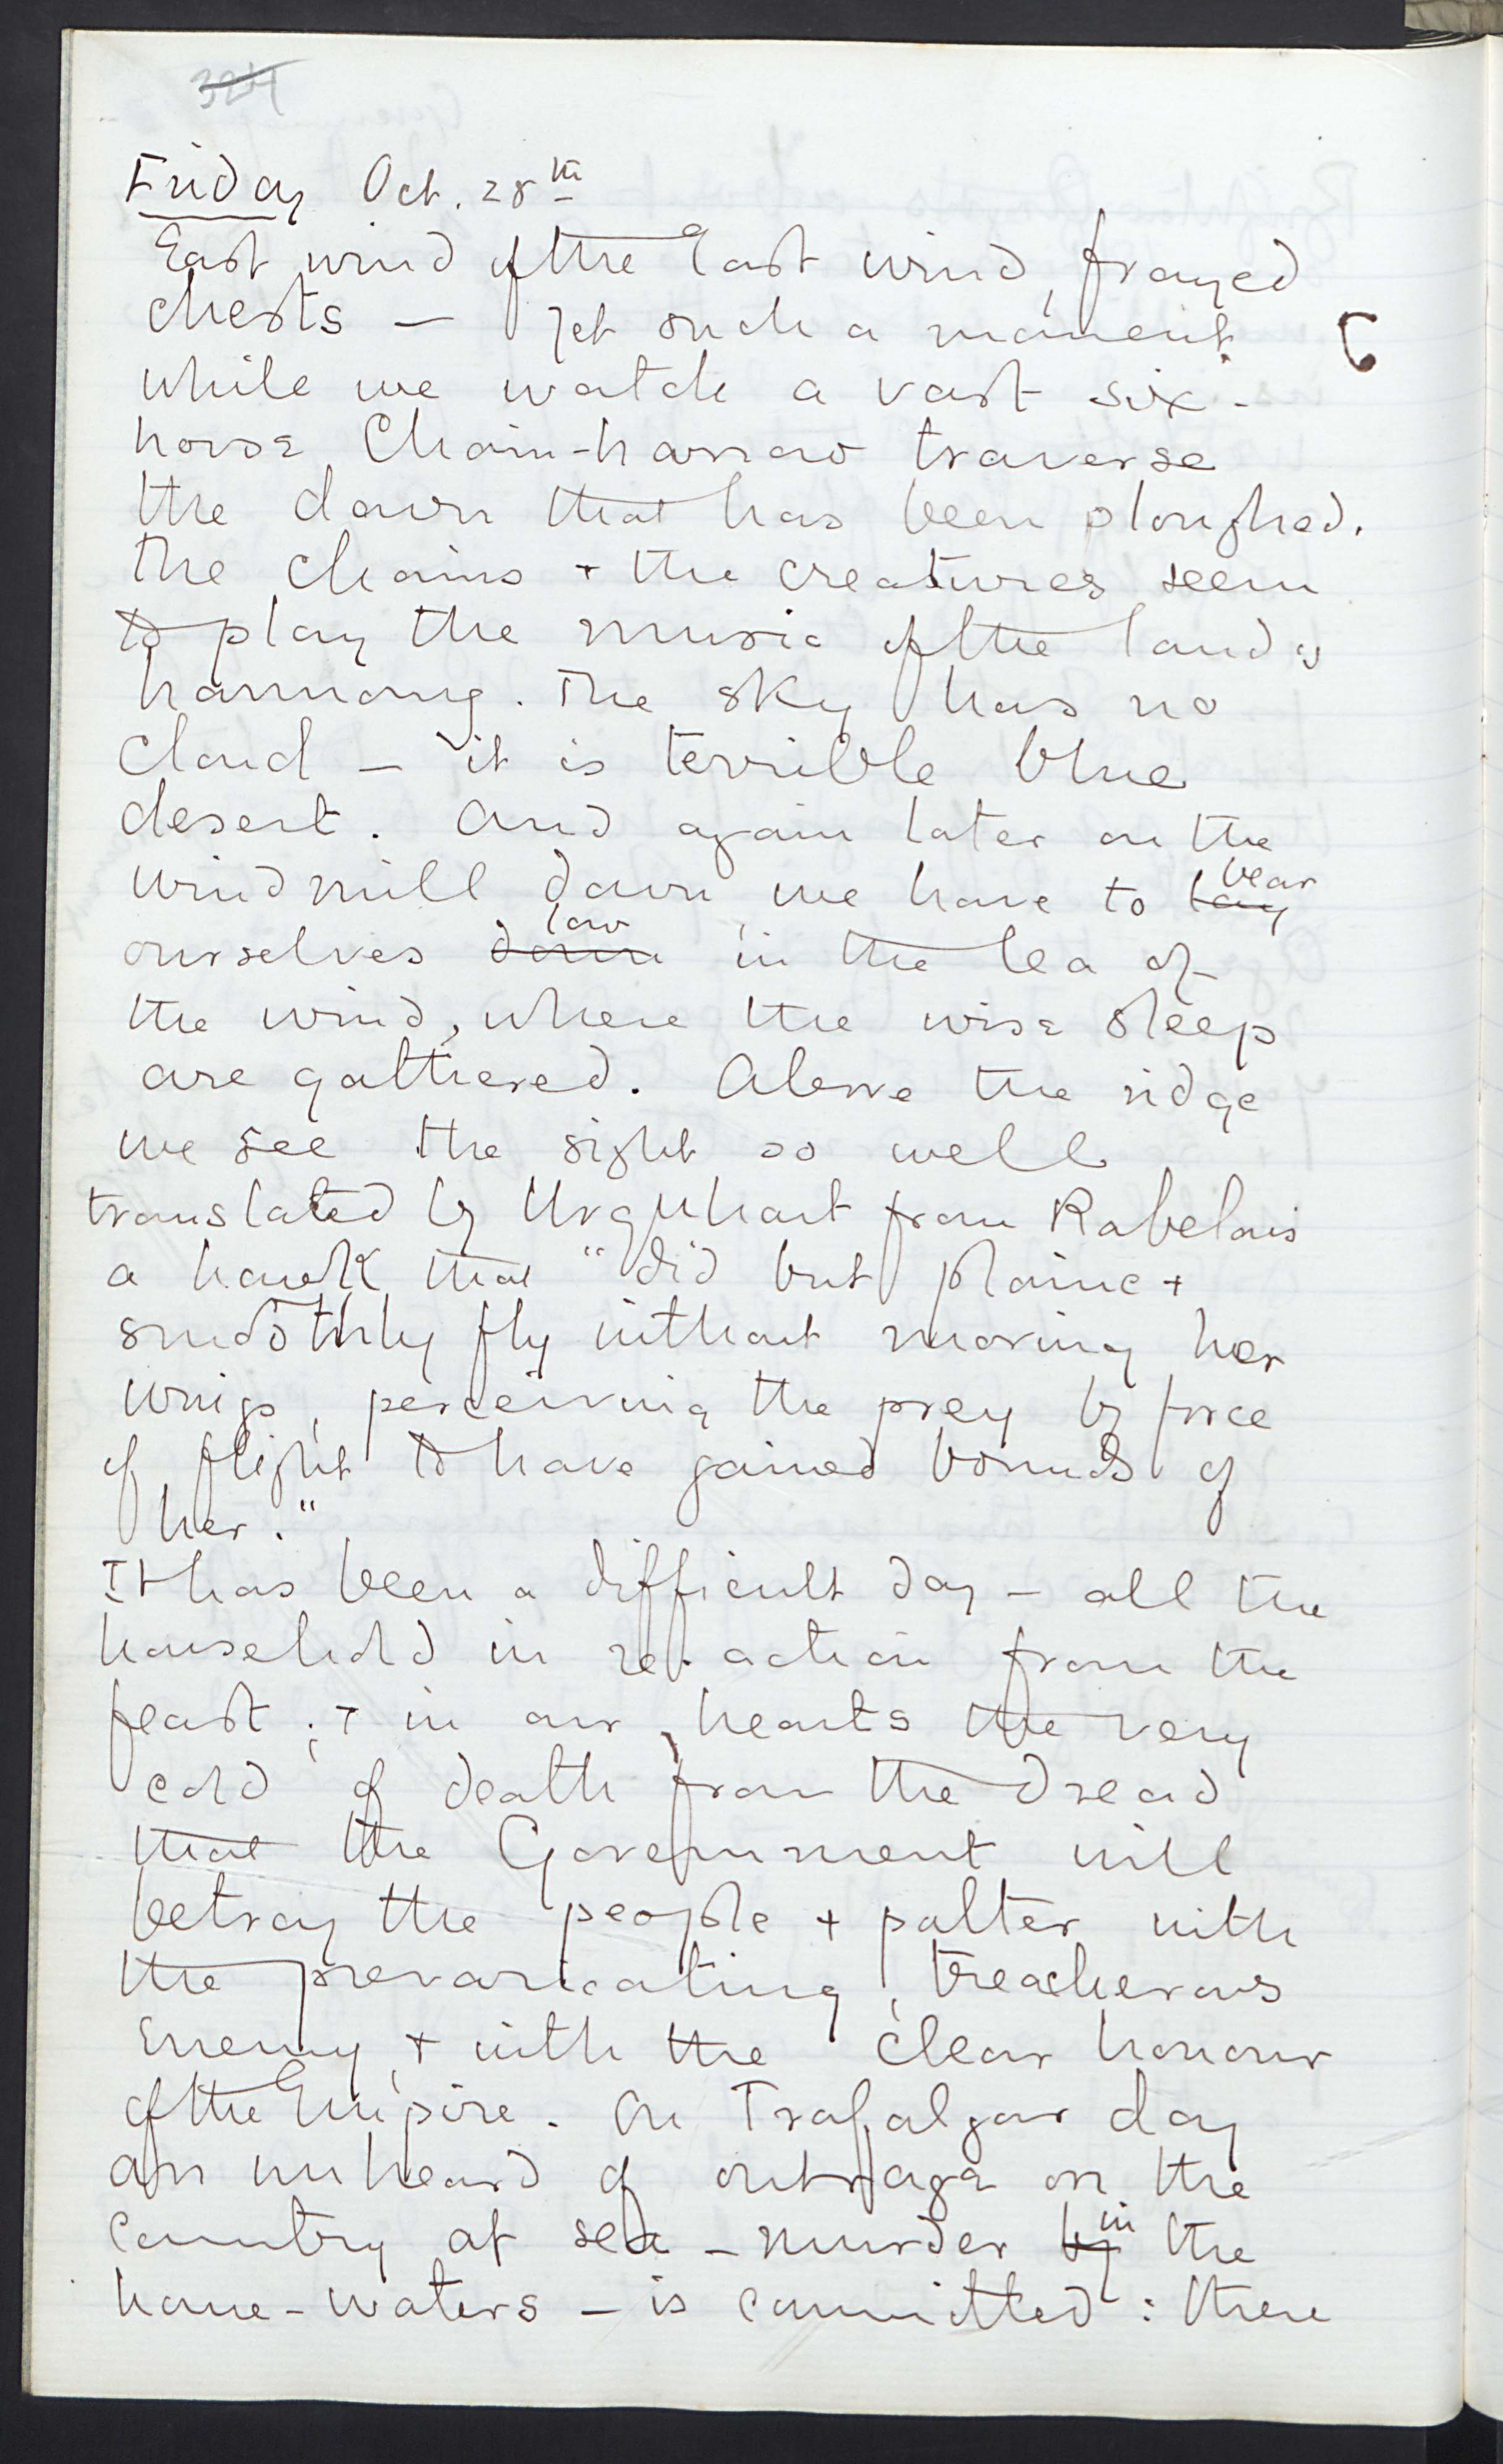 324
Friday Oct. 28th
East wind of the East wind, frayed
chests — yet such a moment
while we watch a vast six-
horse Chain-harrow traverse
the down that has been ploughed.
The chains + the creatures seem
to play the music of the land's
harmony. The sky has no
cloud — it is terrible blue
desert. And again later on the
windmill down we have to lay bear
ourselves down low in the lea of
the wind, where the wise sheep
are gathered. Above the ridge
we see the sight so well
translated by Urquhart from Rabelais
a hawk that "did but plaine +
smoothly fly without moving her
wings, perceiving the prey by force
of flight to have gained bounds of
her."
It has been a difficult day — all the
household in re-action from the
feast; + in our hearts the very
cold of death from the dread
that the Government will
betray the people + palter with
the prevaricating, treacherous
Enemy, + with the clear honour
of the Empire. On Trafalgar day
an unheard of outrage on the
Country at sea — murder by in the
home-waters — is committed: there